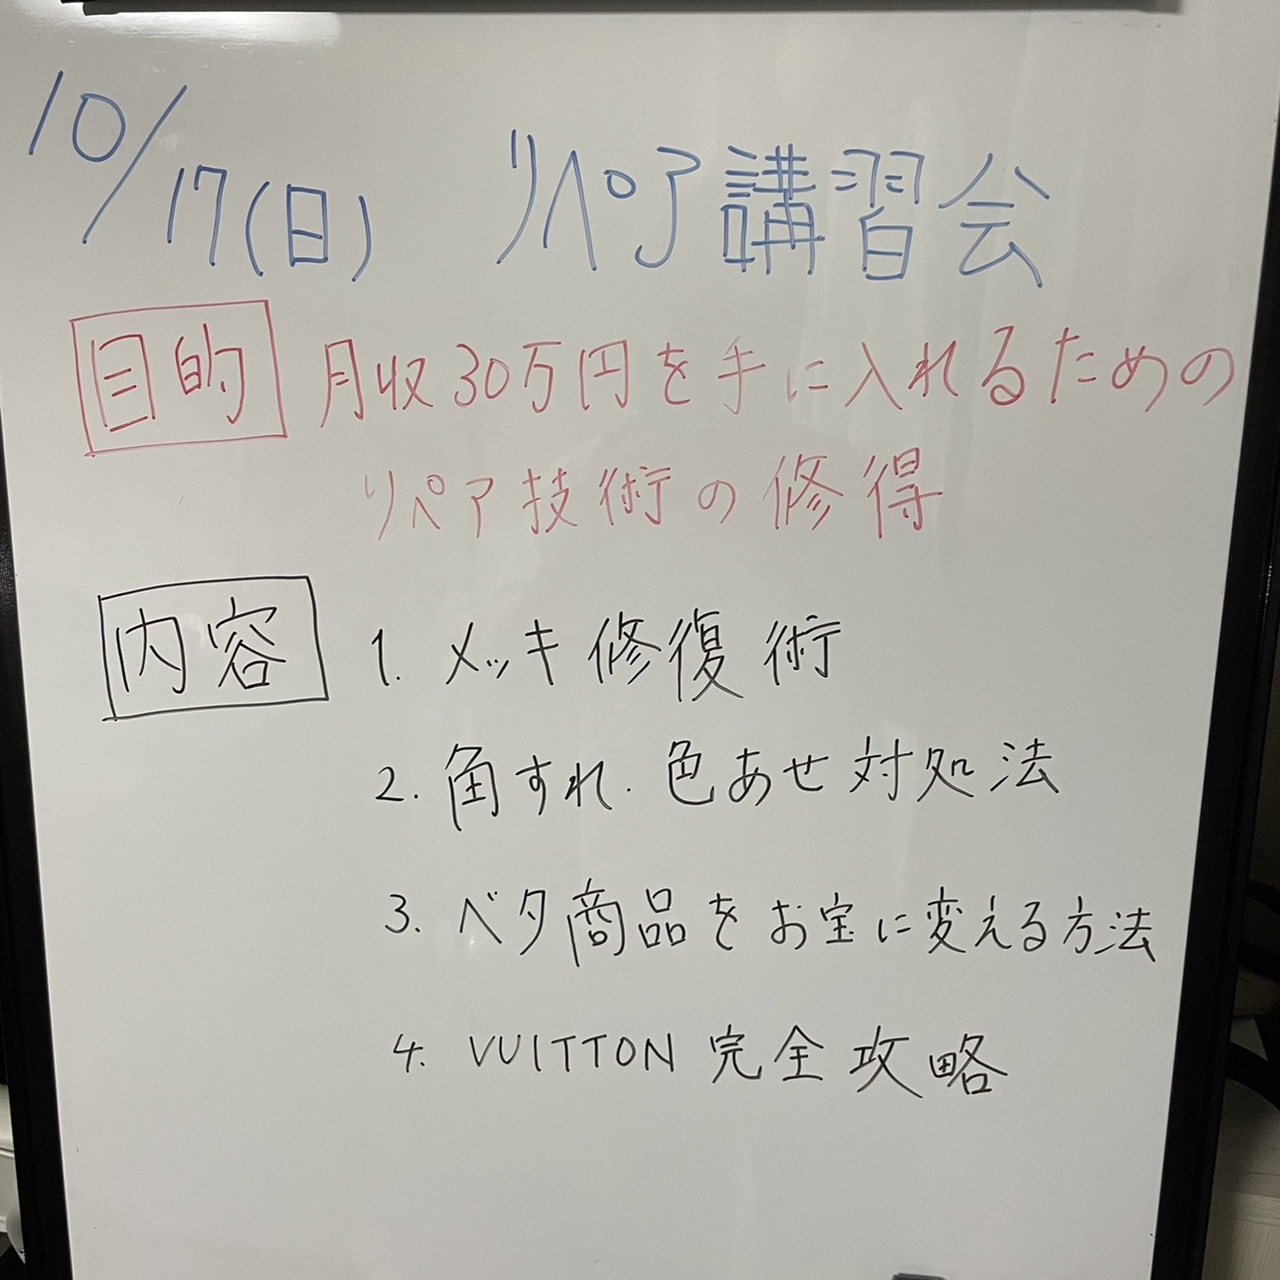 10/17(日) リペア講習会
目的 月収30万円を手に入れるための
リペア技術の修得
内容 1. メッキ修復術
2. 角すれ.色あせ対処法
3. ベタ商品をお宝に変える方法
4. VUITTON完全攻略